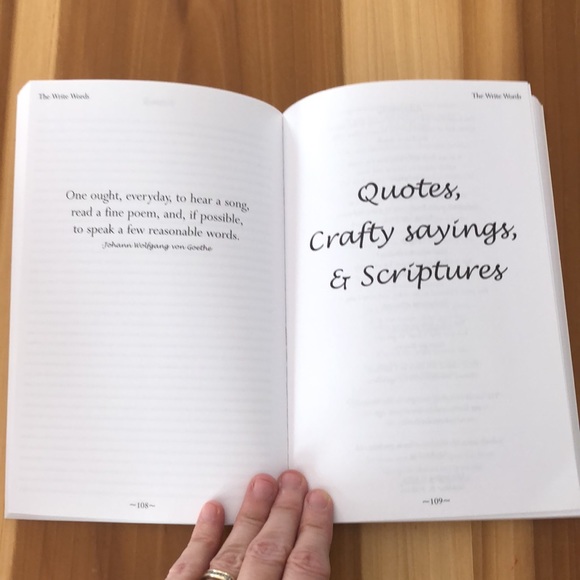 The Write Words
One ought, everyday, to hear a song,
read a fine poem, and, if possible,
to speak a few reasonable words.
Johann Wolfgang von Goethe
~108~
The Write Words
Quotes,
Crafty sayings,
& Scriptures
~109~